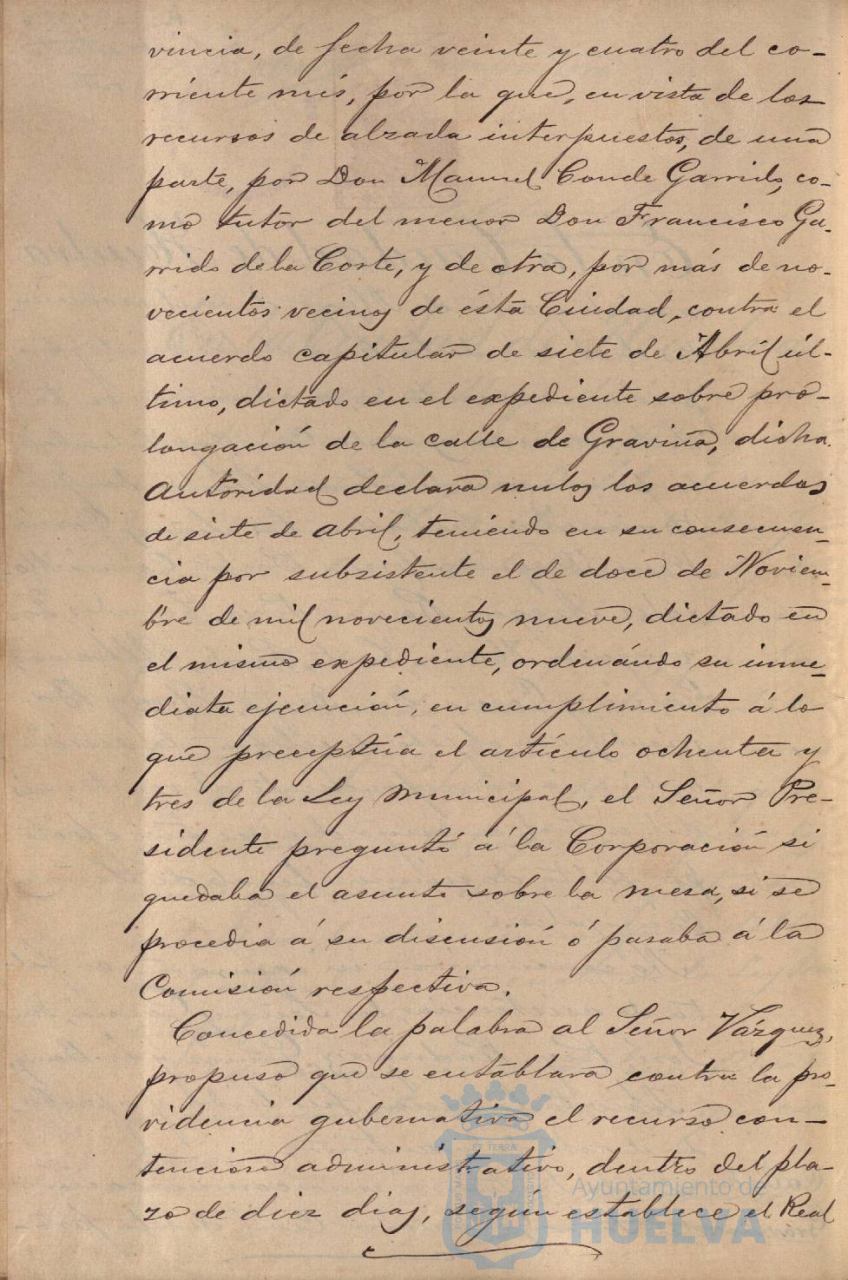 vincia, de fecha veinte y cuatro del co-
rriente més, por la que, en vista de los
recursos de alzada interpuestos, de una
parte, por Don Manuel Conde Garrido, co-
mo tutor del menor Don Francisco Ga-
rrido de la Corte, y de otra, por más de no-
vecientos vecinos de ésta Ciudad, contra el
acuerdo capitular de siete de Abril úl-
timo, dictado en el expediente sobre pro-
longación de la calle de Gravina, dicha
Autoridad declara nulos los acuerdos
de siete de Abril, teniendo en su consecuen-
cia por subsistente el de doce de Noviem-
bre de mil novecientos nueve, dictado en
el mismo expediente, ordenándo su inme-
diata ejecución, en cumplimiento á lo
que preceptúa el artículo ochenta y
tres de la Ley Municipal, el Señor Pre-
sidente preguntó á la Corporación si
quedaba el asunto sobre la mesa, si se
procedia á su discusión ó pasaba á la
Comisión respectiva.
Concedida la palabra al Señor Vázquez,
propuso que se entablara contra la pro-
videncia gubernativa el recurso con-
tencioso administrativo, dentro del pla-
zo de diez dias, según establece el Real
Ayuntamiento de
HUELVA